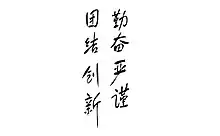 勤奋严谨
团结创新